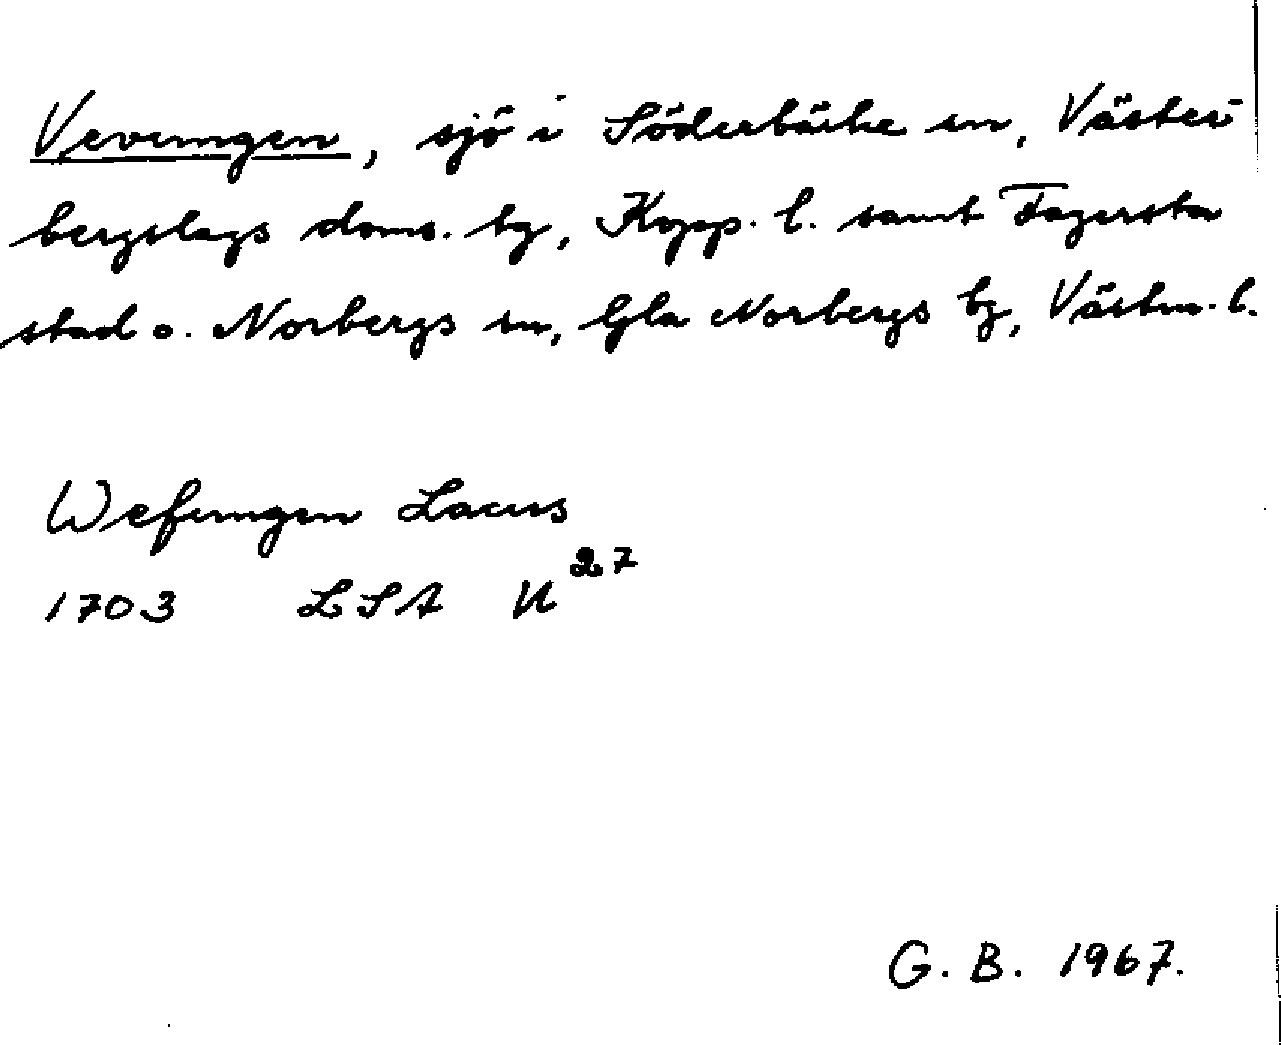 Vevungen, sjö i Söderbärke sn, Väster-
bergslags doms. hg, Kopp. l. samt Fagersta
stad o. Norbergs sn, Gla Norbergs bg, Västm. l.
Wefungen Lacus
1703 LSA U 27
G. B. 1967.